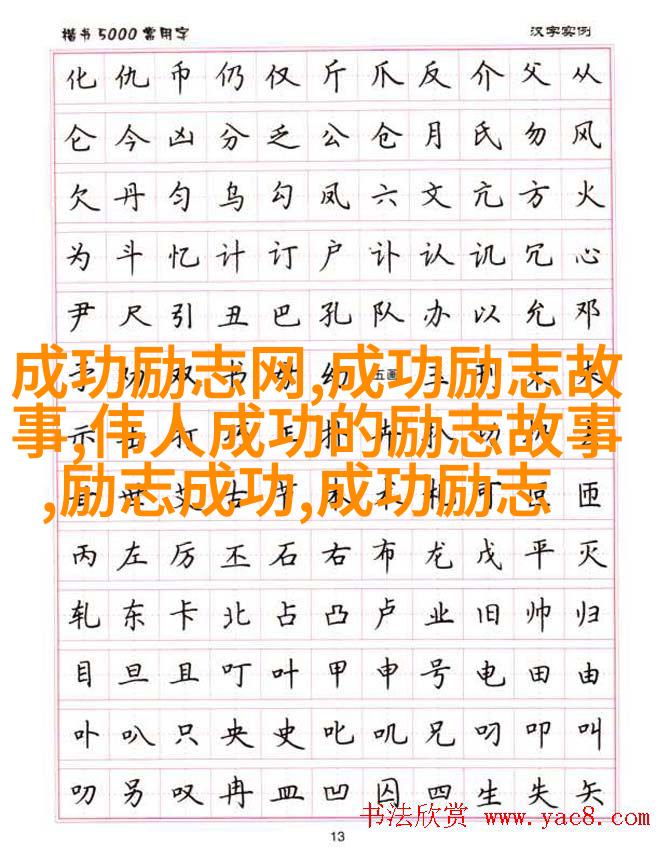 楷书5000常用字 汉字实例
化仇币仍仅斤爪反介父从
仑今凶分乏公仓月氏勿风
欠丹匀乌勾凤六文亢方火
为斗忆计订户讣认讥冗心
尹尺引丑巴孔队办以允邓
成功励志网,成功励志故
事,伟人成功的励志故事
,励志成功,成功励志
匝
丙左厉丕石右布龙戊平灭
轧东卡北占凸卢业旧帅归
目旦且叮叶甲申号电田由
卟叭只央史叱叽兄叼叩叫
叻另叹冉皿凹囚四生失矢
书法欣赏 www.yac8.com
13